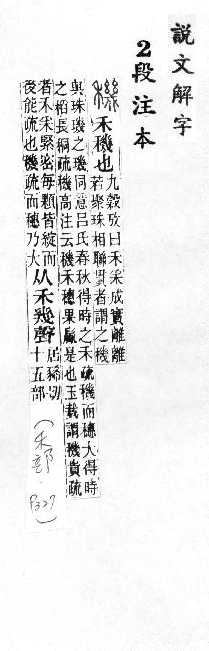 說文解字
2段注本
禾機也九穀攷曰禾采成實離離
若聚珠相聯貫者謂之機
與珠璣之璣同意呂氏春秋得時之禾疏機而穗大得時
之稻長稠疏穖高注云機禾穗果羸是也玉裁謂機貴疏
者禾采緊密每顆皆綻而
後能疏也機疏而穗乃大从禾幾聲居狶切
十五部
(禾部 P327)